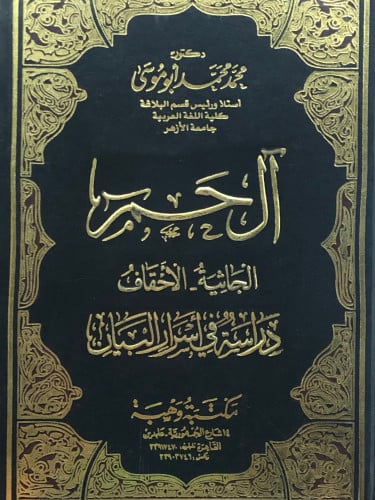 دكتور
محمد محمد أبو موسى
أستاذ ورئيس قسم البلاغة
كلية اللغة العربية
جامعة الأزهر
آل حم
الجاثية - الأحقاف
دراسة في أسرار البيان
مكتبة وهبة
١٤ شارع الجمهورية - عابدين
القاهرة تليفون: ٢٣٩١٧٤٧٠
فاكس: ٢٣٩٠٣٧٤٦